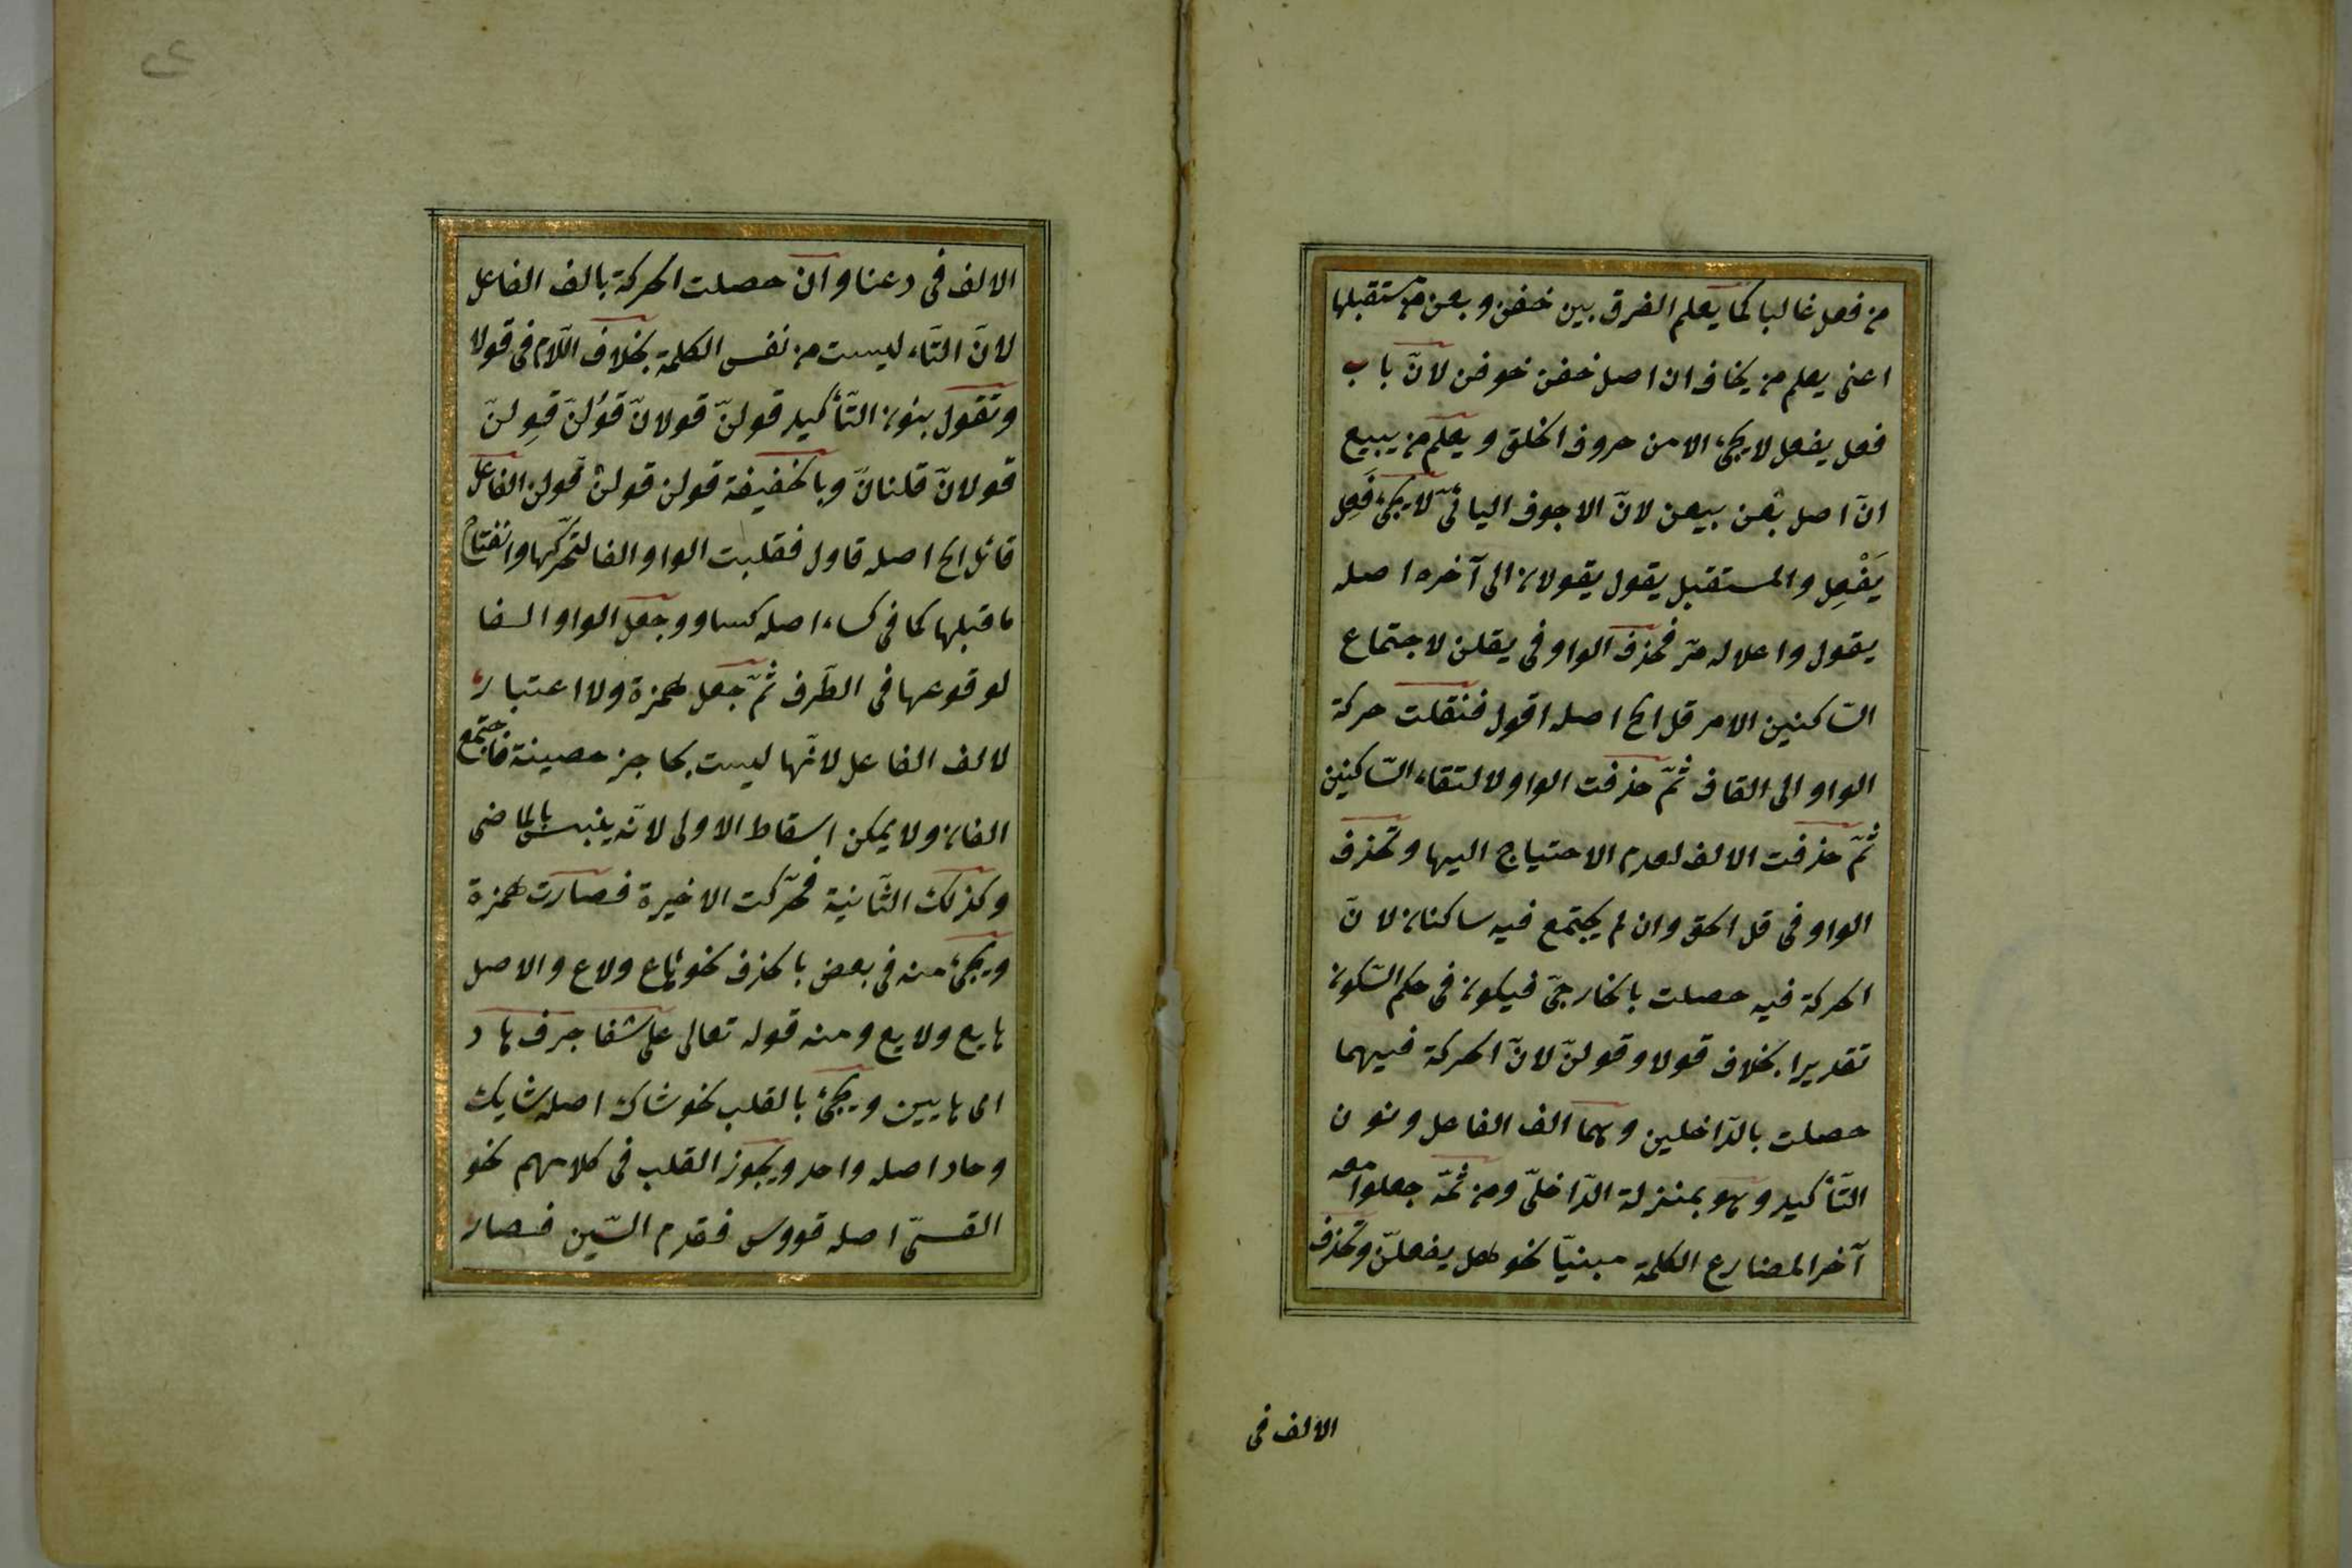 من فعل غالبا كما يعلم الفرق بين خفن وبعن من مستقبلها
اعنى يعلم من يخاف ان اصل خفن خوفن لانّ باب
فعل يفعل لا يجئ الا من حروف الخلق ويعلم من يبيع
انّ اصل بعن بيعن لانّ الاجوف اليائىّ لا يجئ فَعِل
يَفْعِل والمستقبل يقول يقولان الى آخره اصله
يقول واعلاله مرّ فحذف الواو فى يقلن لاجتماع
السّاكنين الامر قل الخ اصله اقول فنقلت حركة
الواو الى القاف ثمّ حذفت الواو لالتقاء السّاكنين
ثمّ حذفت الالف لعدم الاحتياج اليها وتحذف
الواو فى قل الحق وان لم يجتمع فيه ساكنان لانّ
الحركة فيه حصلت بالخارجىّ فيكون فى حكم السّكون
تقديرا بخلاف قولا وقولنّ لانّ الحركة فيهما
حصلت بالدّاخلين وهما الف الفاعل ونون
التّأكيد وهو بمنزلة الدّاخلىّ ومن ثمّة جعلوا معه
آخر المضارع الكلمة مبنيّا نحو هل يفعلنّ وتحذف
الالف فى
الالف فى دعتا وان حصلت الحركة بالف الفاعل
لانّ التّاء ليست من نفس الكلمة بخلاف اللّام فى قولا
وتقول بنون التّأكيد قولنّ قولانّ قوُلنّ قوِلنّ
قولانّ قلنانّ وبالخفيفة قولن قولن قولن الفاعل
قائل الخ اصله قاول فقلبت الواو الفا لتحرّكها وانفتاح
ما قبلها كما فى كساء اصله كساو وجعل الواو الفا
لوقوعها فى الطّرف ثمّ جعل همزة ولا اعتبار
لالف الفاعل لانّها ليست بحاجز حصينة فاجتمع
الفان ولا يمكن اسقاط الاولى لانّه يلتبس بالماضى
وكذلك الثّانية فحرّكت الاخيرة فصارت همزة
ويجئ منه فى بعض بالحذف نحو هاع ولاع والاصل
هايع ولايع ومنه قوله تعالى على شفا جرف هار
اى هايين ويجئ بالقلب نحو شاك اصله شايك
وحاد اصله واحد ويجوز القلب فى كلامهم نحو
القسىّ اصله قووس فقدم السّين فصار